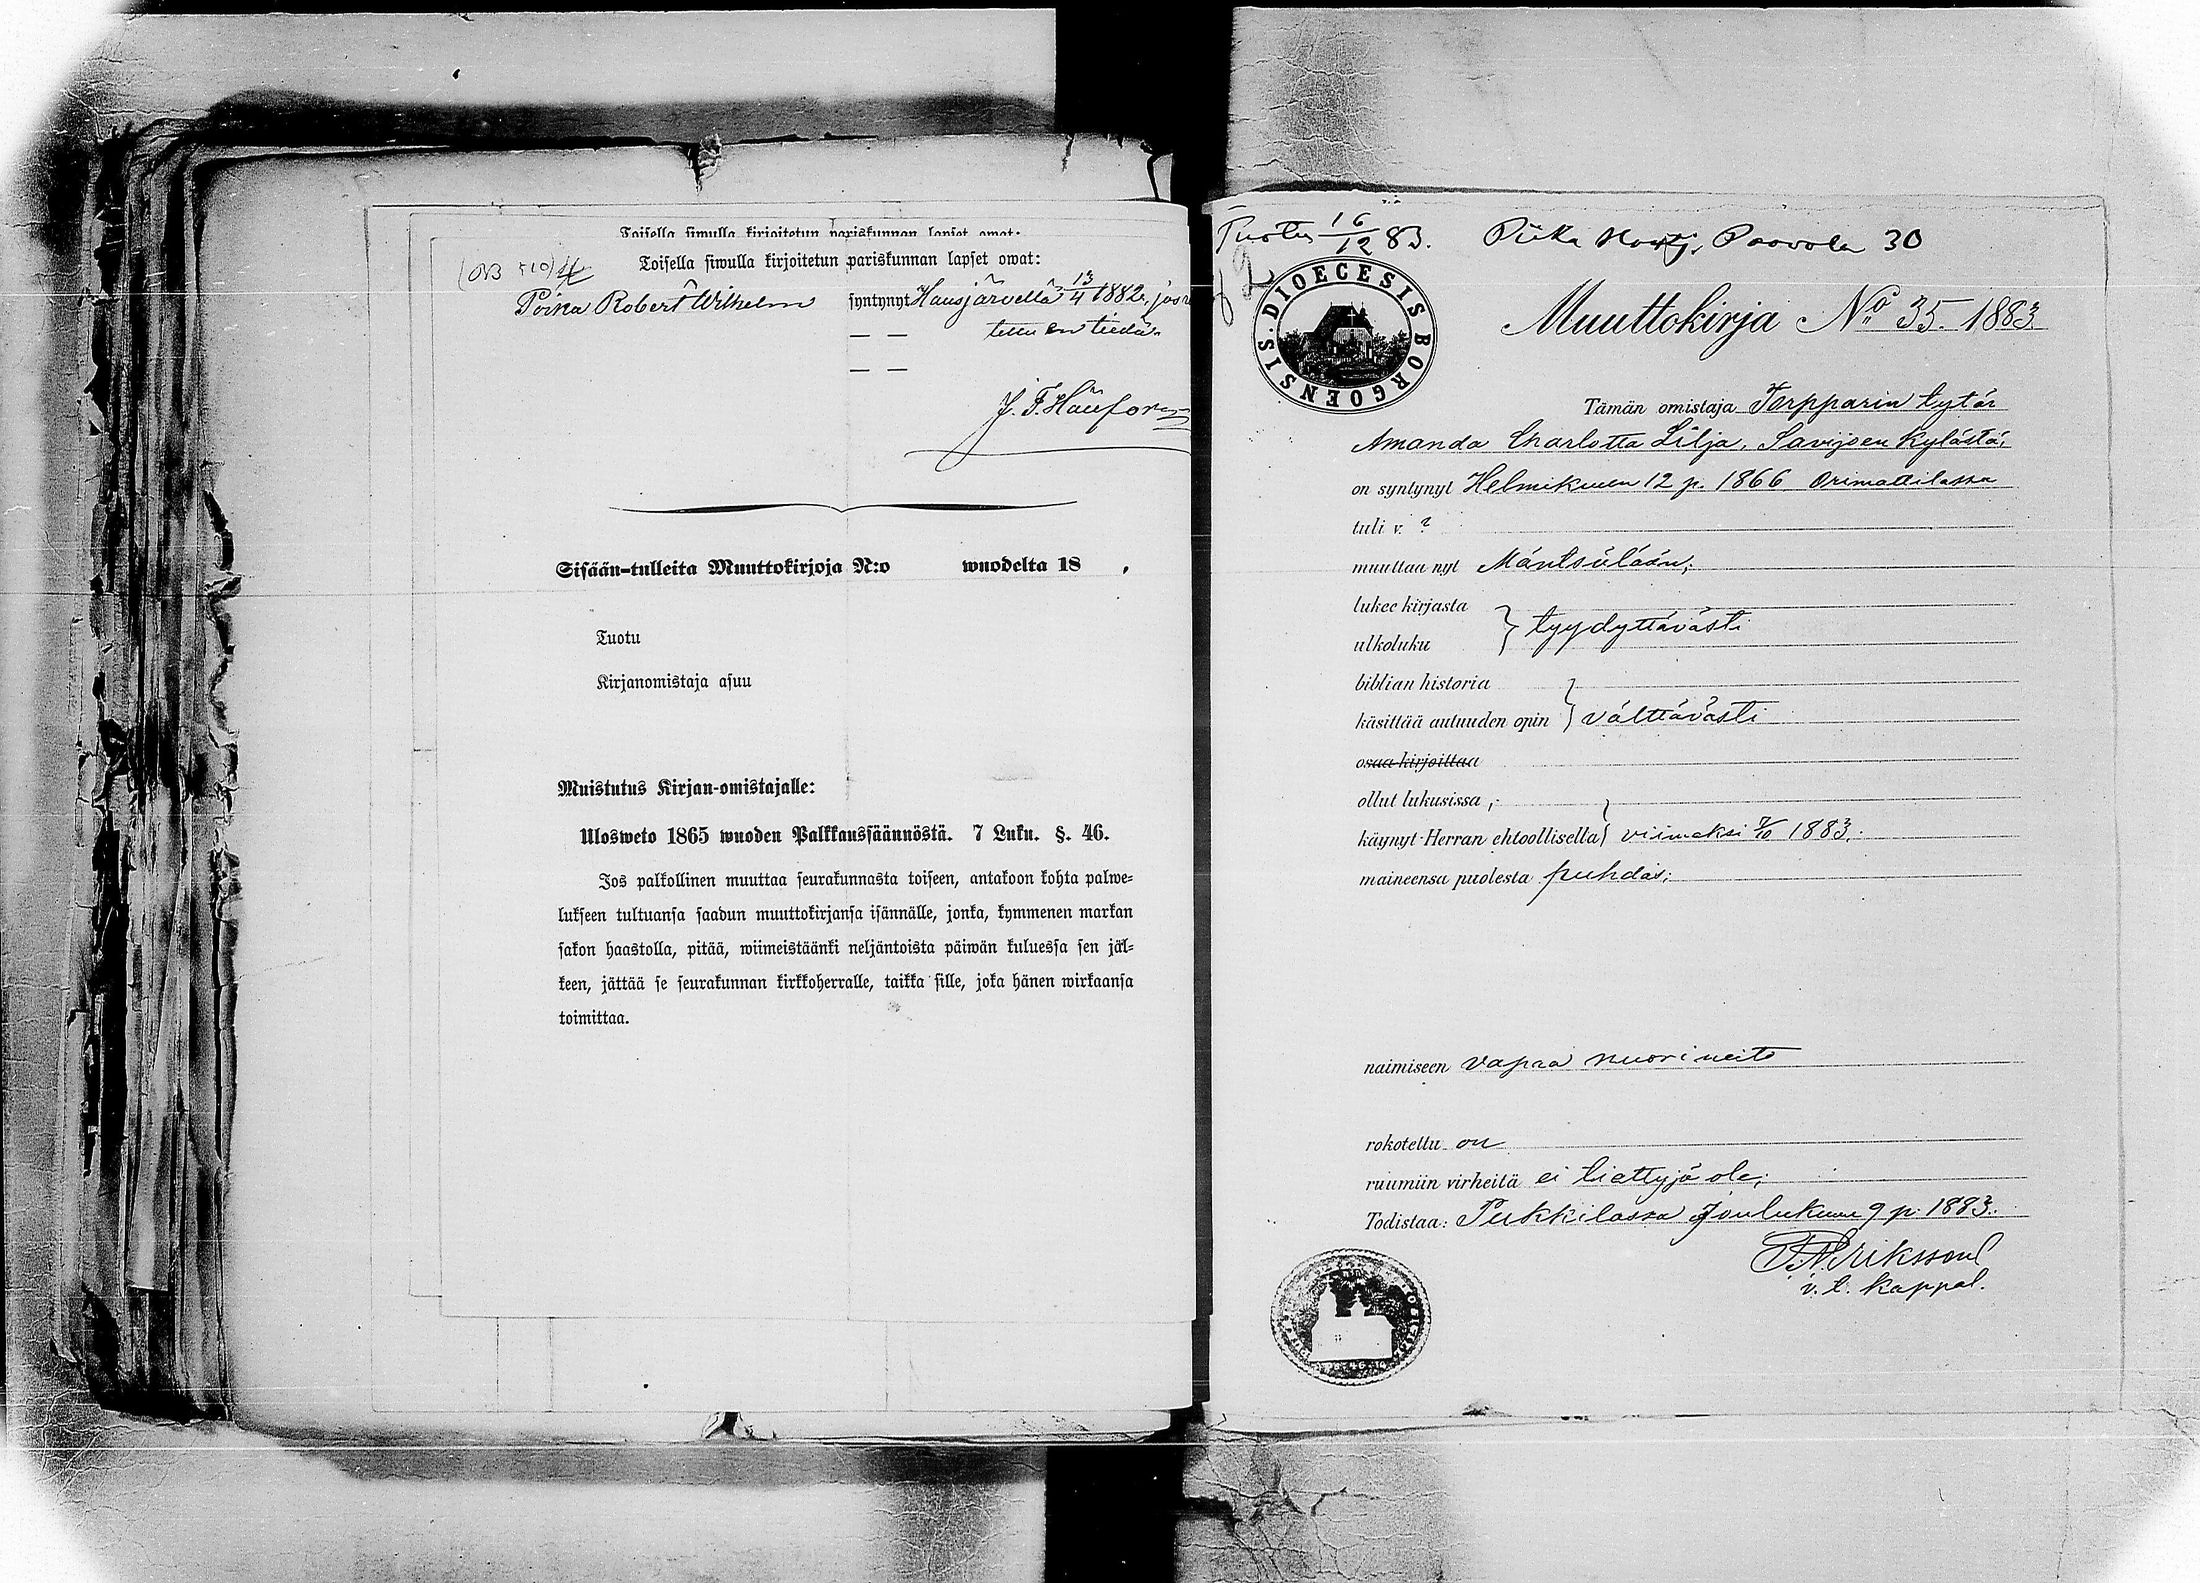 Toisella siwulla kirjoitetun pariskunnan lapset owat:
Toisella siwulla kirjoitetun pariskunnan lapset owat:
Poika Robert Wilhelm syntynyt Hausjärvellä 13/4 1882,
— — en tiedä.
— —
Sisään-tulleita Muuttokirjoja N:o wuodelta 18 .
Tuotu
Kirjanomistaja asuu
Muistutus Kirjan-omistajalle:
Ulosweto 1865 wuoden Palkkaussäännöstä. 7 Luku. §. 46.
Jos palkollinen muuttaa seurakunnasta toiseen, antakoon kohta palwe-
lukseen tultuansa saadun muuttokirjansa isännälle, jonka, kymmenen markan
sakon haastolla, pitää, wiimeistäänki neljäntoista päiwän kuluessa sen jäl-
keen, jättää se seurakunnan kirkkoherralle, taikka sille, joka hänen wirkaansa
toimittaa.
Tuotu 16/12 83. Piika Paavola 30
DIOECESIS BORGOENSIS.
Muuttokirja No 35. 1883.
Tämän omistaja Torpparin tytär
Amanda Charlotta Lilja, Savijoen kylästä,
on syntynyt Helmikuun 12 p. 1866 Orimattilassa
tuli v. ?
muuttaa nyt Mäntsälään;
lukee kirjasta
ulkoluku } tyydyttävästi
biblian historia
käsittää autuuden opin } välttävästi
osaa kirjoittaa
ollut lukusissa,
käynyt Herran ehtoollisella } viimeksi 7/10 1883.
maineensa puolesta puhdas;
naimiseen vapaa nuori neito
rokotettu on
ruumiin virheitä ei tiettyjä ole;
Todistaa: Pukkilassa Joulukuun 9 p. 1883.
Eriksson
v. t. kappal.